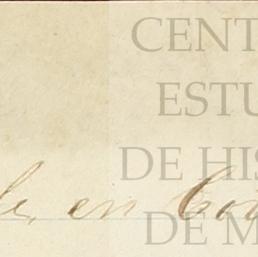 CENT
ESTU
DE HIS
DE M
le, en Co